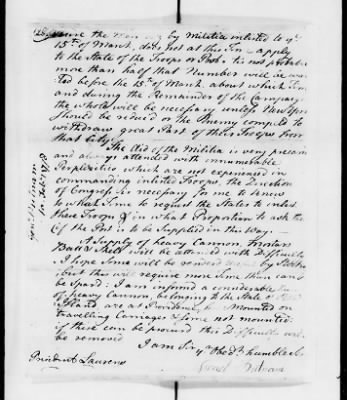 the Men by Militia inlisted to ye
15th of March, does not at this Time apply
to the State of the Troops or Post. tis not probable
more than half that Number will be
before the 15th of March about which Time
and during the Remainder of the Campaign
the whole will be necessary unless New York
should be reduced or the Enemy compeld to
withdraw great Part of their Troops from
that City.
The Aid of the Militia is very precarious
and always attended with innumerable
Perplexities which are not experienced in
commanding inlisted Troops, the Direction
of Congress is necessary for me to know
to what time to request the States to inlist
these Troops & in what Proportion to ask them
if the Post is to be Supplied in this Way.
A Supply of heavy Cannon, Mortars
Ball & Shells will be attended with Difficulty
I hope Some will be
but this will require more Time than can
be Spared: I am informd a considerable
of heavy Cannon, belonging to the State of
Island, are at Providence, Mounted on
travelling Carriages & some not mounted.
if these can be procured this Difficulty will
be removed
I am Sir yr Obedt humble
Israel Putnam
President Laurens